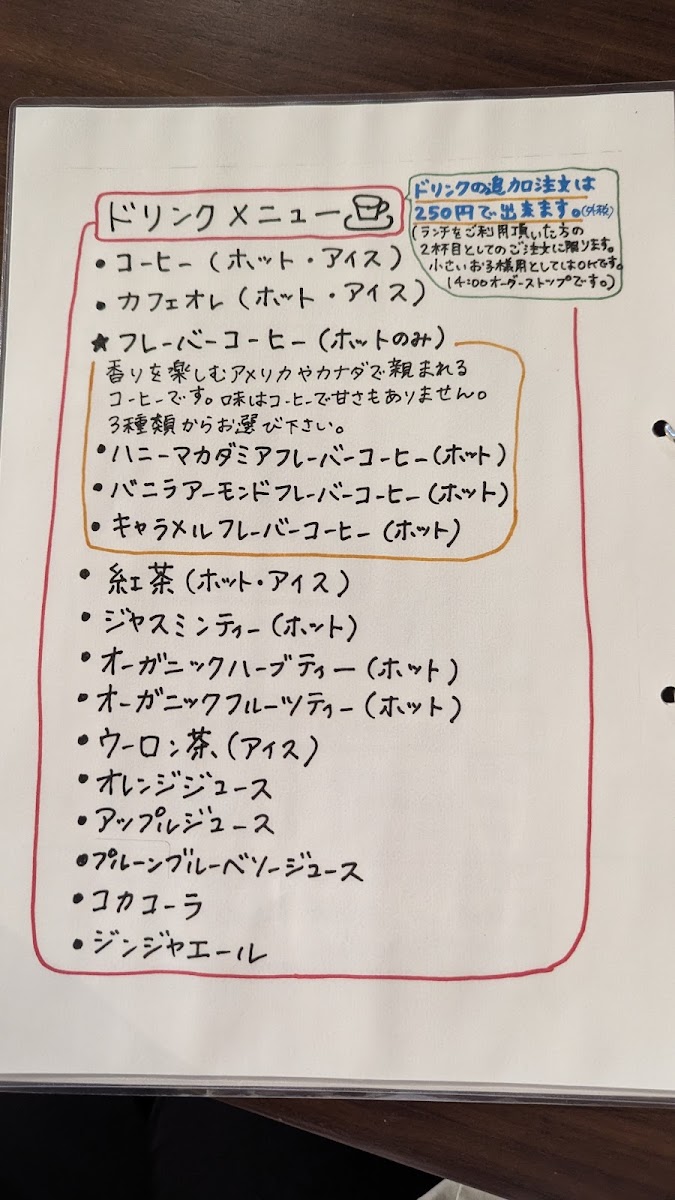 ドリンクメニュー
ドリンクの追加注文は
250円で出来ます。(外税)
(ランチをご利用頂いた方の
2杯目としてのご注文に限ります。
小さいお子様用としてはOKです。
14:00オーダーストップです。)
・コーヒー(ホット・アイス)
・カフェオレ(ホット・アイス)
★フレーバーコーヒー(ホットのみ)
香りを楽しむアメリカやカナダで親まれる
コーヒーです。味はコーヒーで甘さもありません。
3種類からお選び下さい。
・ハニーマカダミアフレーバーコーヒー(ホット)
・バニラアーモンドフレーバーコーヒー(ホット)
・キャラメルフレーバーコーヒー(ホット)
・紅茶(ホット・アイス)
・ジャスミンティー(ホット)
・オーガニックハーブティー(ホット)
・オーガニックフルーツティー(ホット)
・ウーロン茶(アイス)
・オレンジジュース
・アップルジュース
・プルーンブルーベリージュース
・コカコーラ
・ジンジャエール